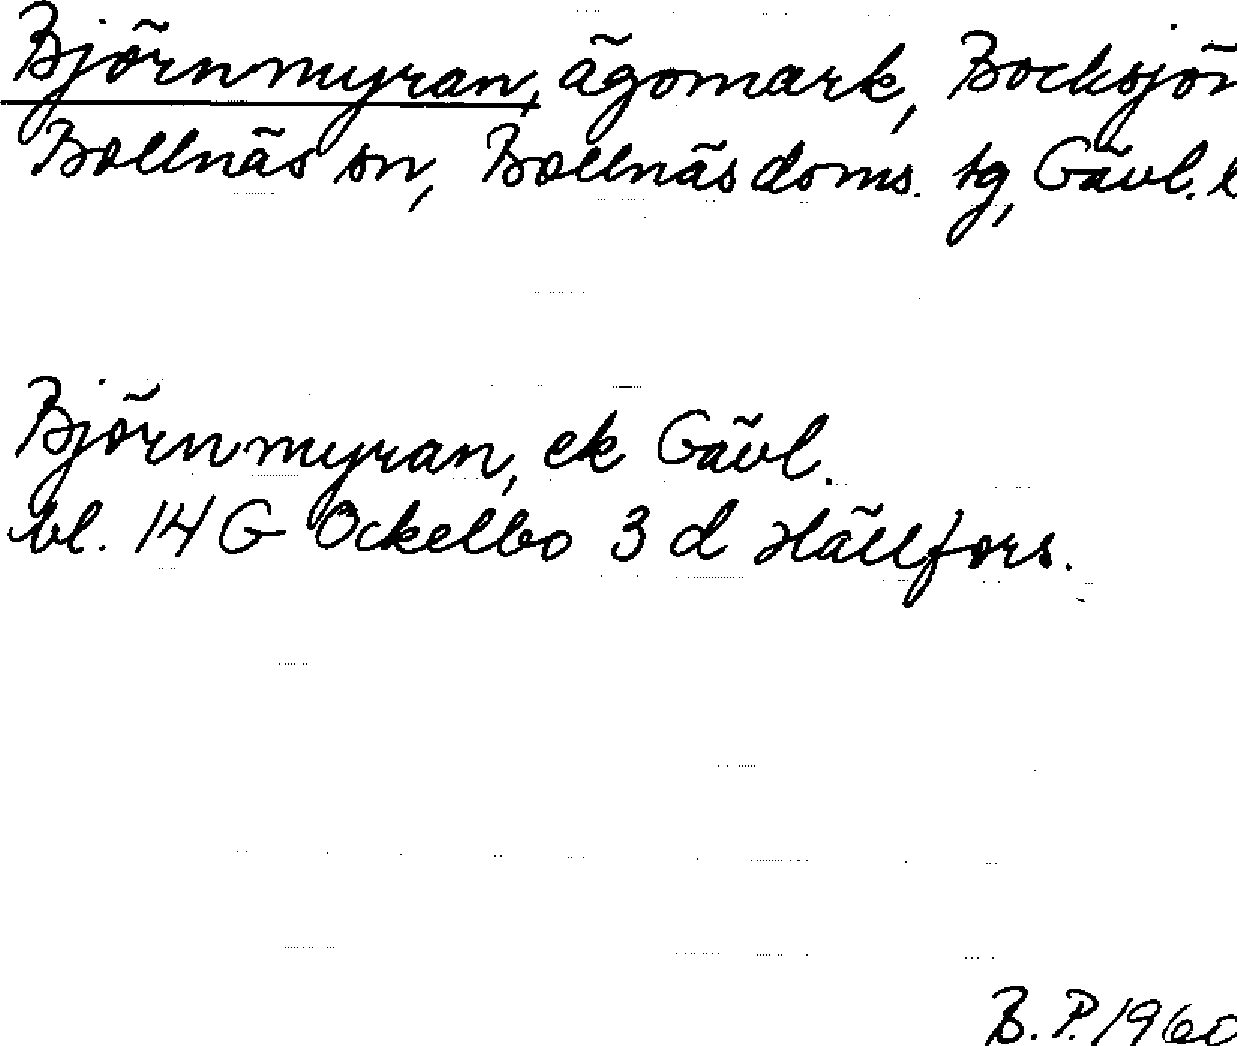 Björnmyran, ägomark, Bocksjön
Bollnäs sn, Bollnäs doms. tg, Gävl. l
Björnmyran, ek Gävl.
bl. 14 G Ockelbo 3 d Hällfors.
B. P. 1960